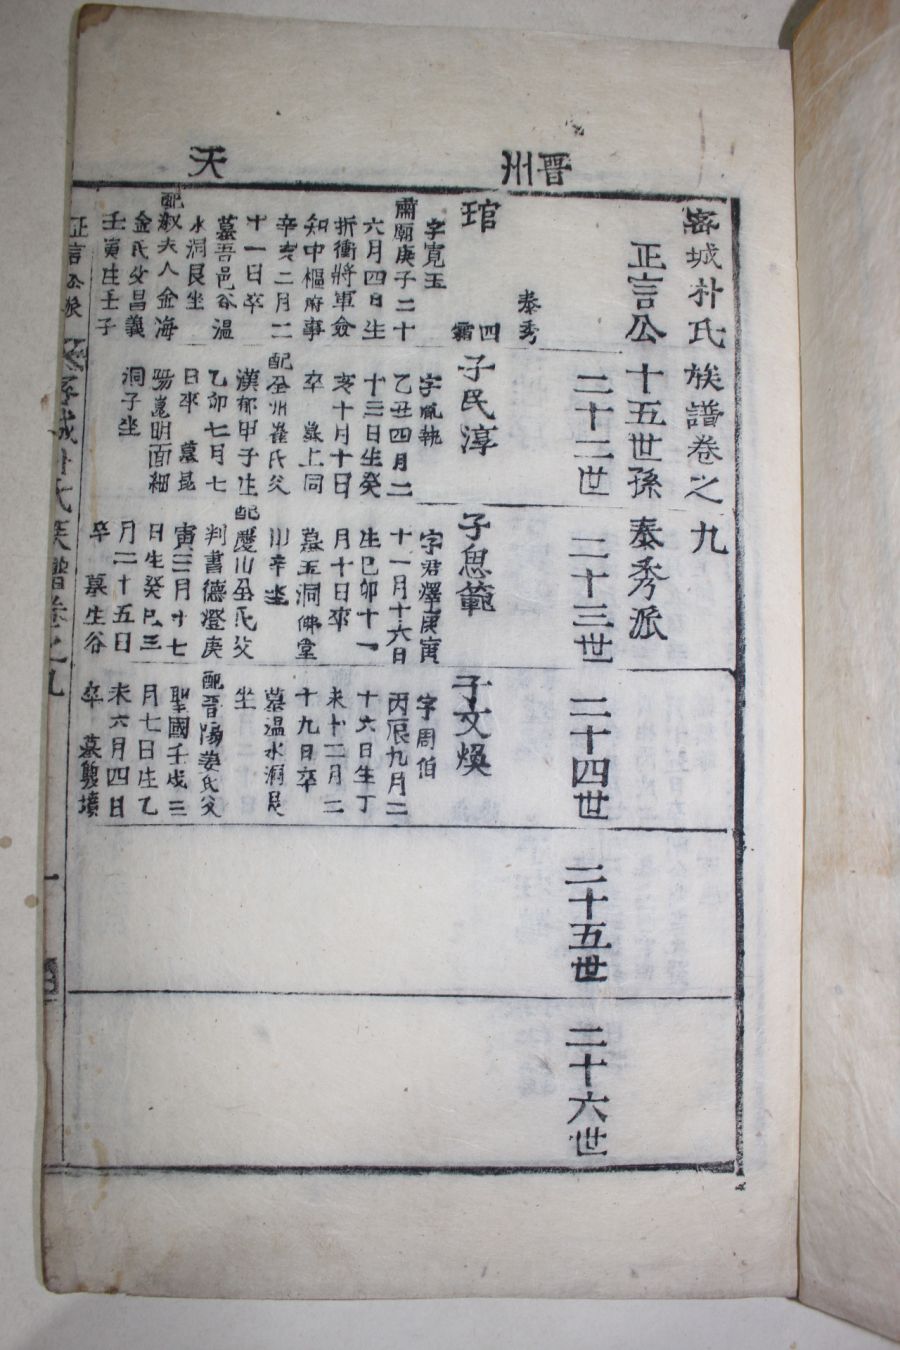 晋州
天
密城朴氏族譜卷之九
正言公十五世孫泰秀派
二十二世
二十三世
二十四世
二十五世
二十六世
泰秀
四
霜
琯
字寬玉
肅廟庚子二十
六月四日生
折衝將軍僉
知中樞府事
辛亥二月二
十一日卒
墓吾邑谷溫
水洞艮坐
配淑夫人金海
金氏父昌義
壬寅生壬子
子民淳
字胤執
乙丑四月二
十三日生癸
亥十月十日
卒 墓上同
配全州崔氏父
漢郁甲子生
乙卯七月七
日卒 墓昆
陽嵬明面細
洞子坐
子思範
字君燁庚寅
十一月十六日
生巳卯十一
月十日卒
墓玉洞佛堂
川辛坐
配慶州金氏父
判書德澄庚
寅三月十七
日生癸巳三
月二十五日
卒 墓生谷
子文煥
字周伯
丙辰九月二
十六日生丁
未十二月二
十九日卒
墓溫水洞艮
坐
配晋陽姜氏父
聖國壬戌三
月七日生乙
未六月四日
卒 墓墳
正言公派
密城朴氏族譜卷之九
一